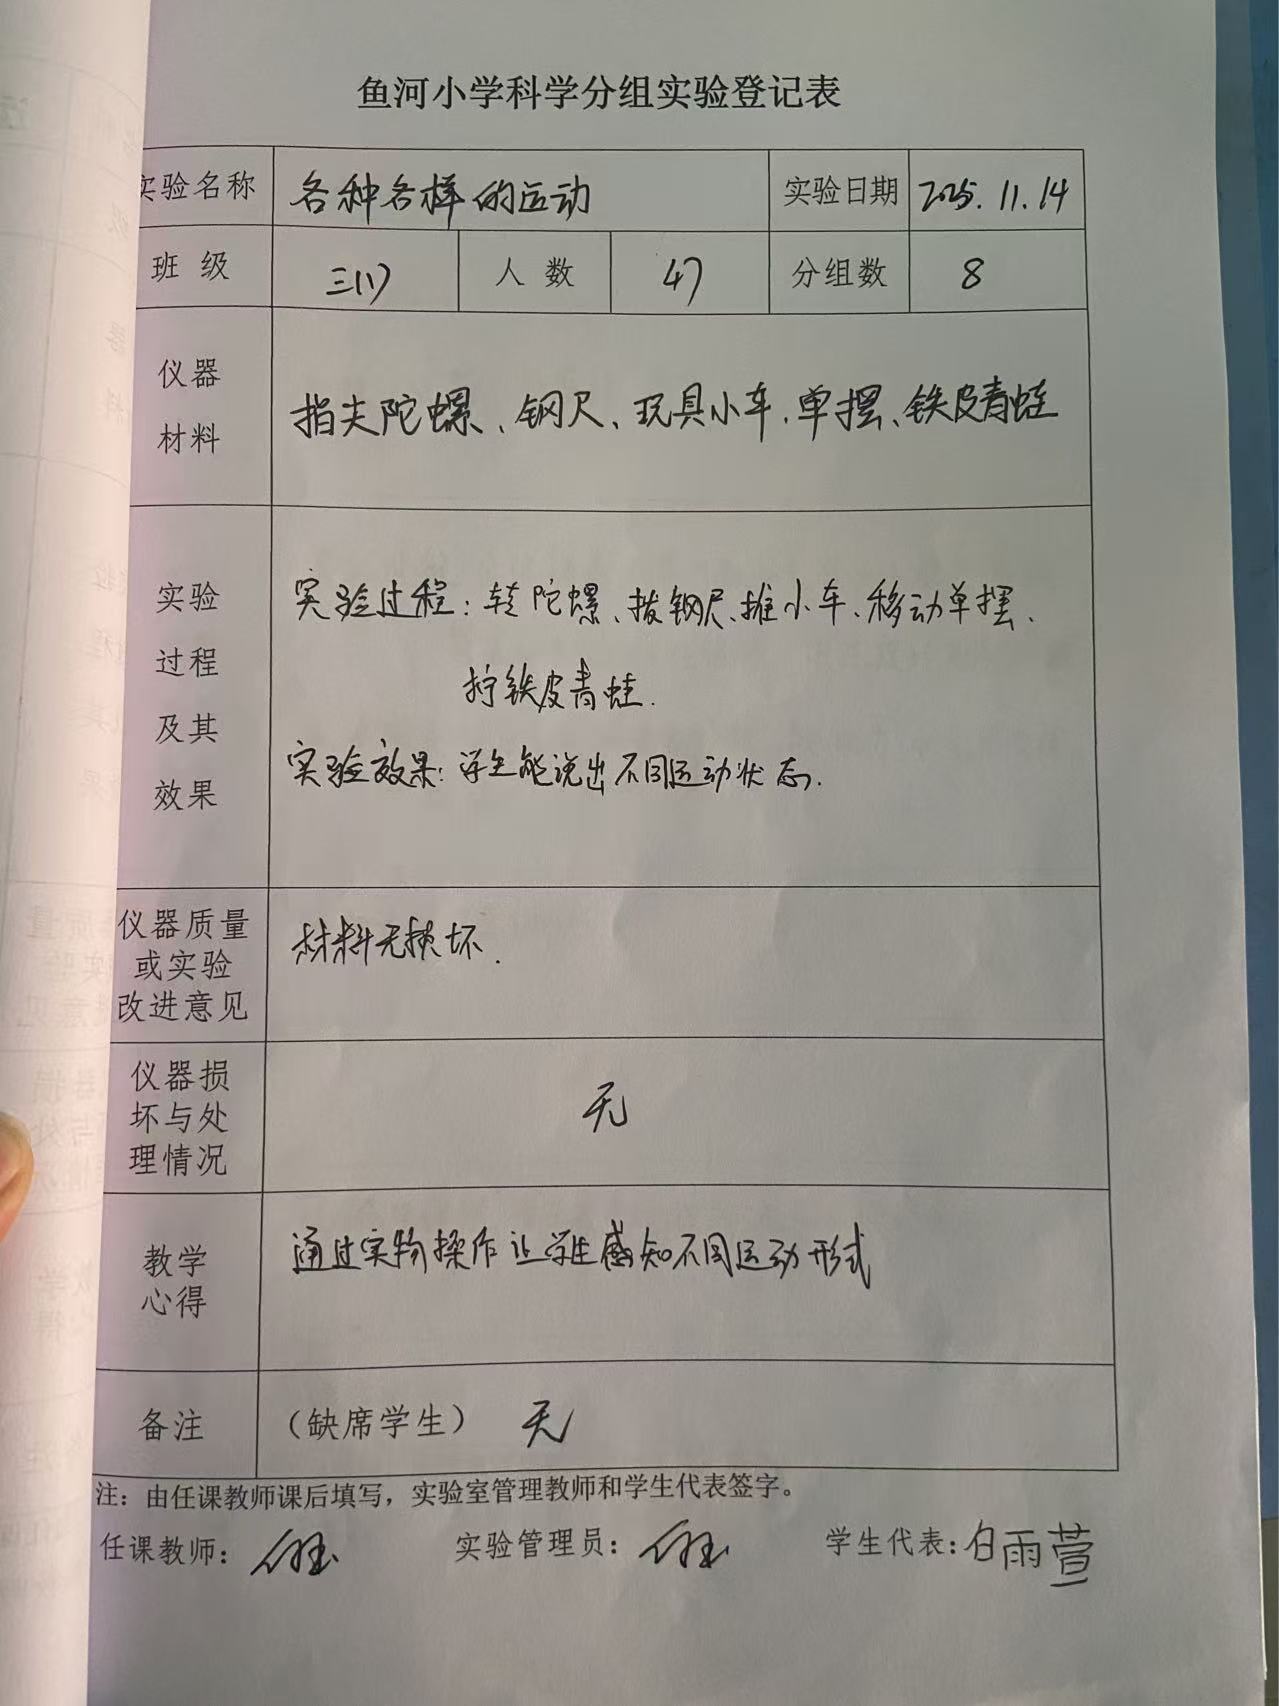 鱼河小学科学分组实验登记表
实验名称 各种各样的运动 实验日期 2025.11.14
班级 三(1) 人数 47 分组数 8
仪器
材料
指尖陀螺、钢尺、玩具小车、单摆、铁皮青蛙
实验
过程
及其
效果
实验过程：转陀螺、拨钢尺、推小车、移动单摆、
拧铁皮青蛙.
实验效果：学生能说出不同运动状态.
仪器质量
或实验
改进意见
材料无损坏.
仪器损
坏与处
理情况
无
教学
心得
通过实物操作让学生感知不同运动形式
备注 （缺席学生） 无
注：由任课教师课后填写，实验室管理教师和学生代表签字。
任课教师： 实验管理员： 学生代表：白雨萱